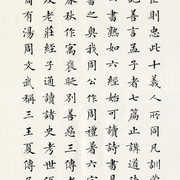 臣則忠此十義人所同凡訓蒙
善言孟子者七篇止講道德
書熟如六經始可讀詩書易
書之奧我周公作周禮著六官
春秋作寓褒貶別善惡三傳
及老莊經子通讀諸史考世
商有湯周文武稱三王夏傳子